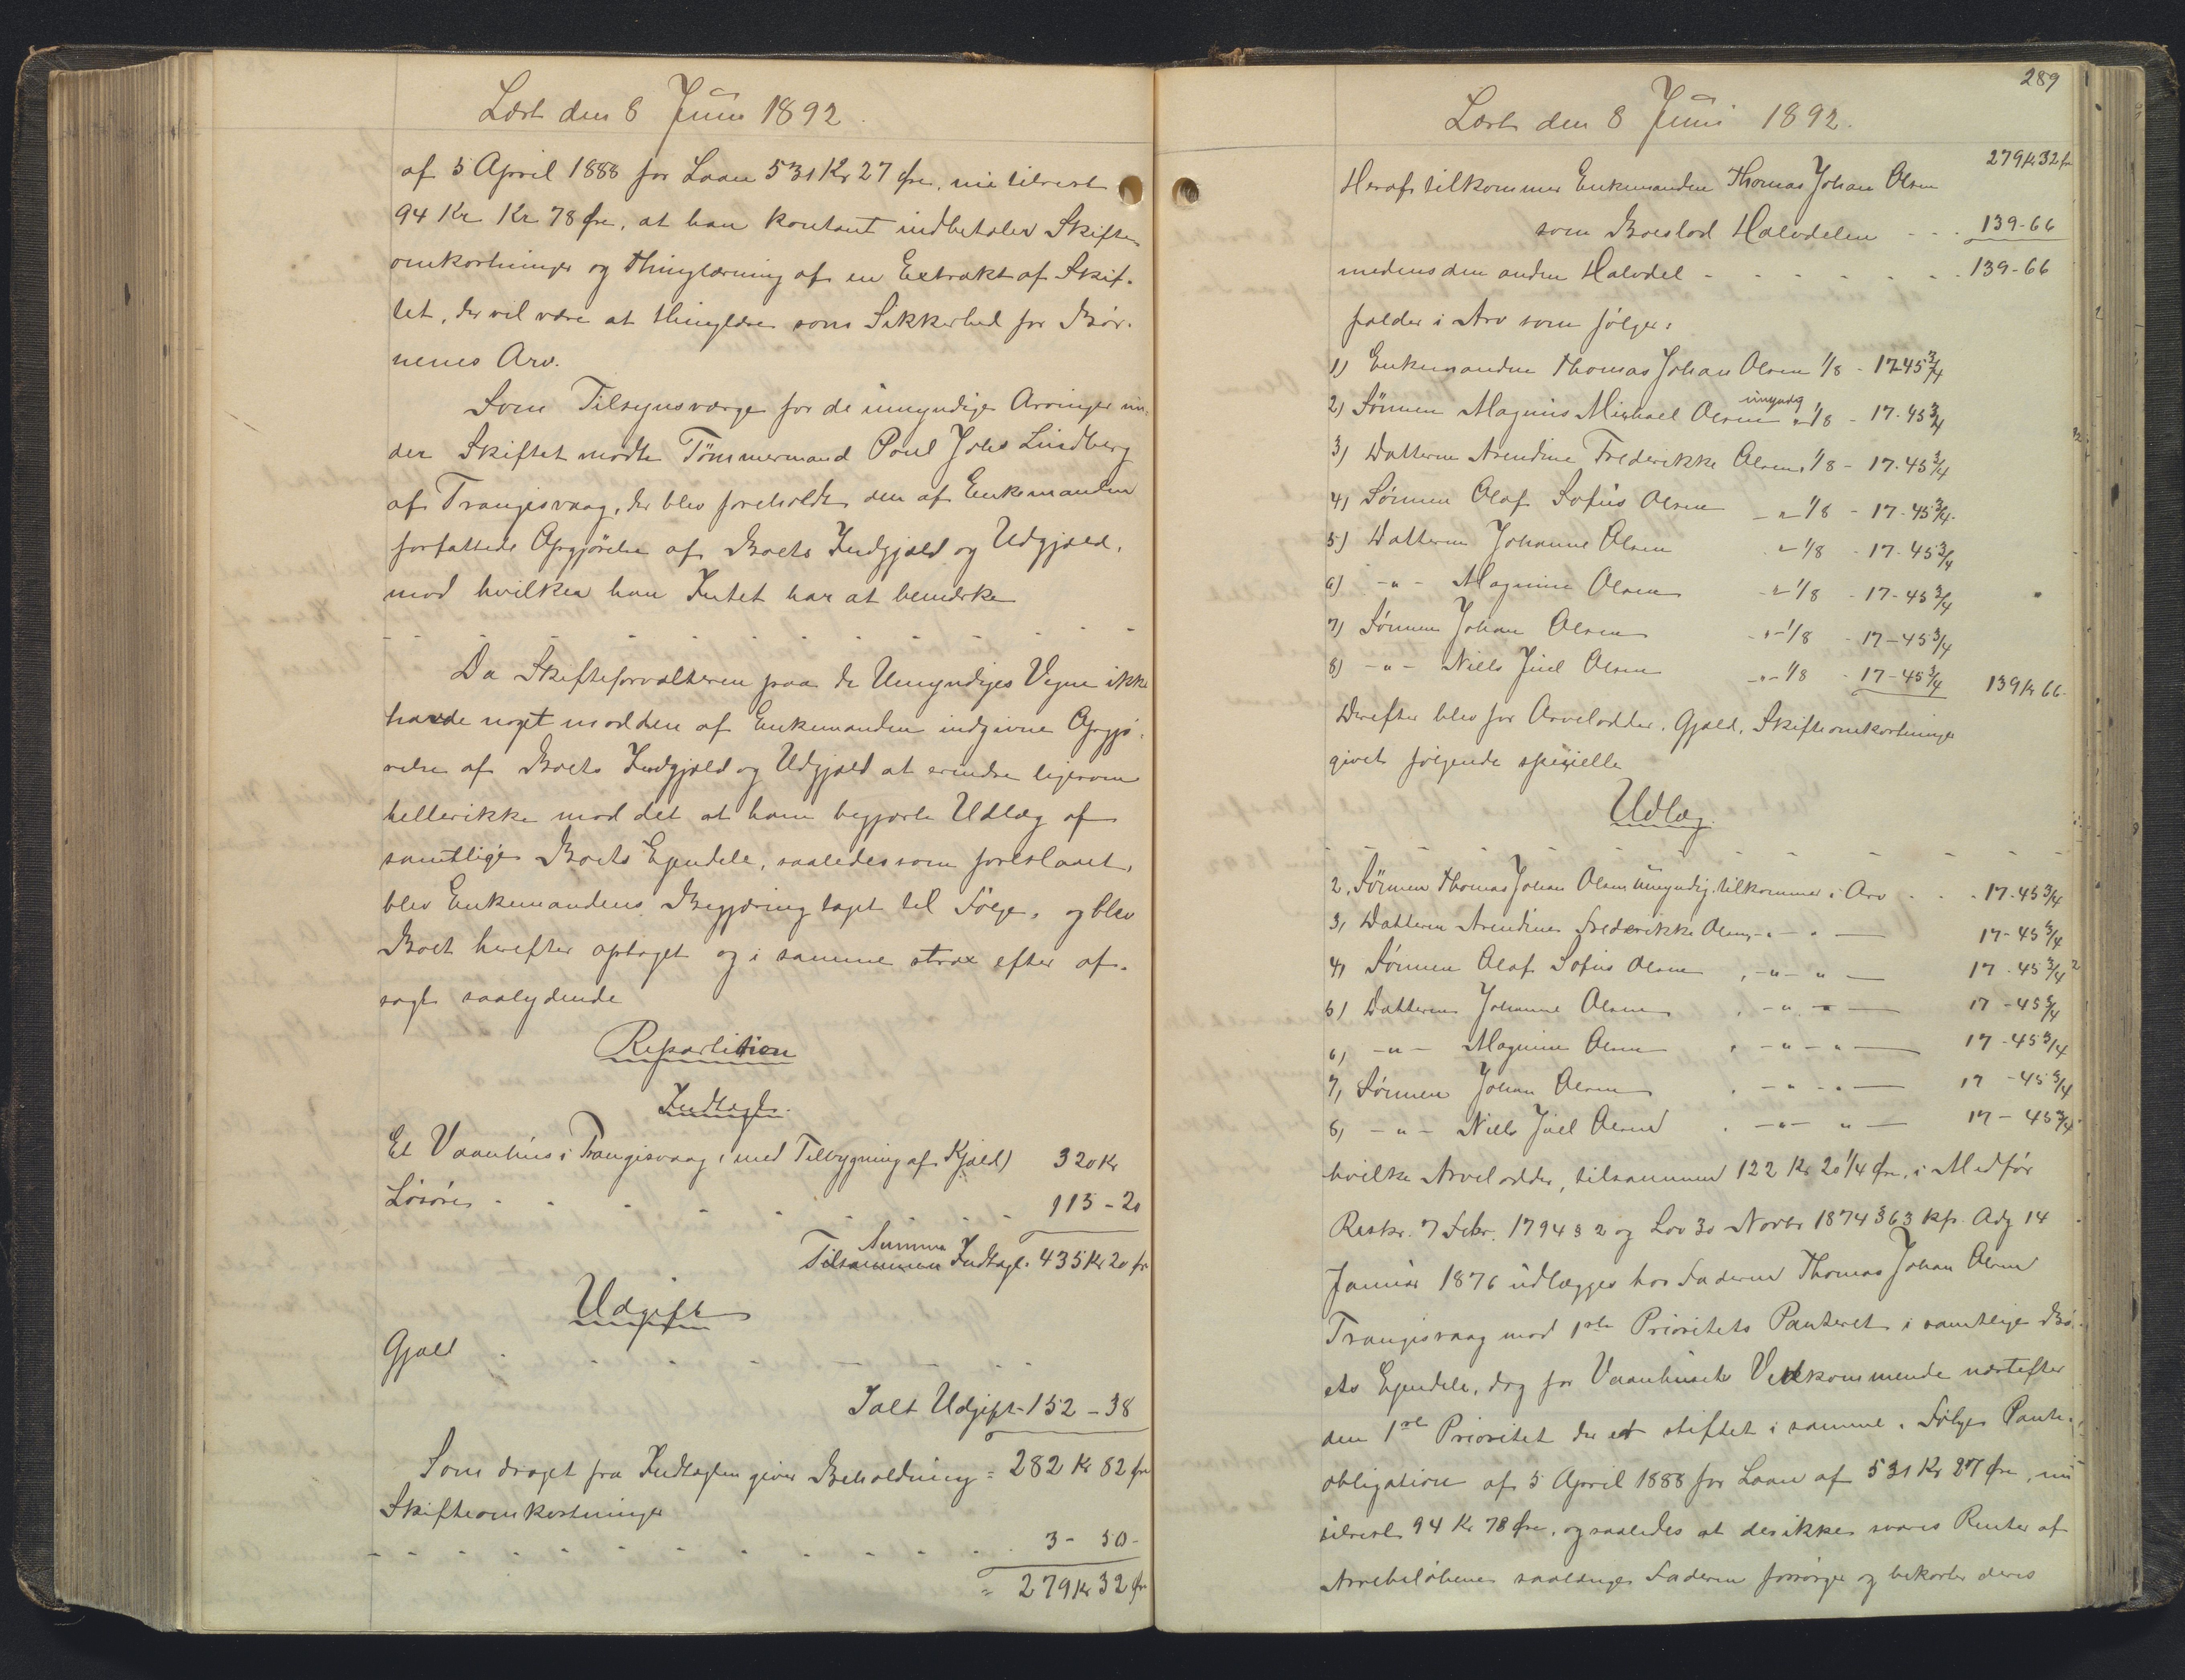 Læst den 8 Juni 1892.
af 5 April 1888 for Laan 531 Kr 27 Øre, nu tilrest
94 Kr Kr 78 Øre, at han kontant indbetaler Skifte-
omkostninger og Thinglæsning af en Extrakt af Skif-
tet, der vil være at thinglæse som Sikkerhed for Bør-
nenes Arv.
Som Tilsynsværge for de umyndige Arvinger un-
der Skiftet mødte Tømmermand Poul Johs Lindberg
af Trangisvaag, der blev foreholdt den af Enkemanden
forfattede Opgjørelse af Boets Indgjæld og Udgjæld,
mod hvilken han Intet har at bemærke
Da Skifteforvalteren paa de Umyndiges Vegne ikke
havde noget mod den af Enkemanden indgivne Opgjø-
relse af Boets Indgjæld og Udgjæld at erindre ligesom
hellerikke mod det at ham begjærte Udlæg af
samtlige Boets Ejendele, saaledes som foreslaaet,
blev Enkemandens Begjæring taget til Følge, og blev
Boet herefter optaget og i samme strax efter af-
sagt saalydende
Repartition
Indtægt.
Et Vaanhus i Trangisvaag (med Tilbygning af Kjæld) 320 Kr
Løsøre - - - - - - - 115 - 20
Summa
Tilsammen Indtægt. 435 Kr 20 Ør
Udgift
Gjæld - - - - - - -
Ialt Udgift - 152 - 38
Som draget fra Indtægten giver Beholdning = 282 Kr 82 Øre
Skifteomkostninger
- - - - - - - - - - 3 - 50 -
= 279 Kr 32 Øre
289
Læst den 8 Juni 1892.
279 Kr 32 Ør
Heraf tilkommer Enkemanden Thomas Johan Olsen
som Boeslod Halvdelen - - - 139 - 66
medens den anden Halvdel - - - - - - - 139 - 66
falder i Arv som følger:
1) Enkemanden Thomas Johan Olsen 1/8 - 17 45 3/4
umyndig
2) Sønnen Magnus Michael Olsen " 1/8 - 17 - 45 3/4
3) Datteren Arendine Frederikke Olsen, 1/8 - 17 - 45 3/4
4) Sønnen Olaf Sofus Olsen - " 1/8 - 17 - 45 3/4
5) Datteren Johanne Olsen - " 1/8 - 17 - 45 3/4
6) - " - Magnine Olsen - " 1/8 - 17 - 45 3/4
7) Sønnen Johan Olsen - " - 1/8 - 17 - 45 3/4
8) - " - Niels Juel Olsen - " - 1/8 - 17 - 45 3/4 139 Kr 66 -
Derefter blev for Arvelodder, Gjæld, Skifteomkostninger
givet følgende specielle
Udlæg.
- - - - - - - - - -
2, Sønnen Thomas Johan Olsen umyndig tilkommer i Arv - - - 17 - 45 3/4
3, Datteren Arendine Frederikke Olsen, - " - " - 17 - 45 3/4
4, Sønnen Olaf Sofus Olsen , - " - " - 17 - 45 3/4
5) Datteren Johanne Olsen , - " - " - 17 - 45 3/4
6) - " - Magnine Olsen , - " - " - 17 - 45 3/4
7, Sønnen Johan Olsen , - " - " - 17 - 45 3/4
8) - " - Niels Juel Olsen , - " - " - 17 - 45 3/4
hvilke Arvelodder, tilsammen 122 Kr 20 1/4 Øre, i Medfør
Reskr. 7 Febr. 1794 § 2 og Lov 30 Novbr 1874 § 63 kfr. Adg 14
Januar 1876 udlægges hos Faderen Thomas Johan Olsen
Trangisvaag mod 1ste Prioritets Panteret i samtlige Bo-
ets Ejendele, dog for Vaanhusets Vedkommende næstefter
den 1ste Prioritet der er stiftet i samme i Følge Pante-
obligation af 5 April 1888 for Laan af 531 Kr 27 Øre, nu
tilrest 94 Kr 78 Øre, og saaledes at der ikke svares Renter af
Arvebeløbene saalænge Faderen forsørger og bekoster deres